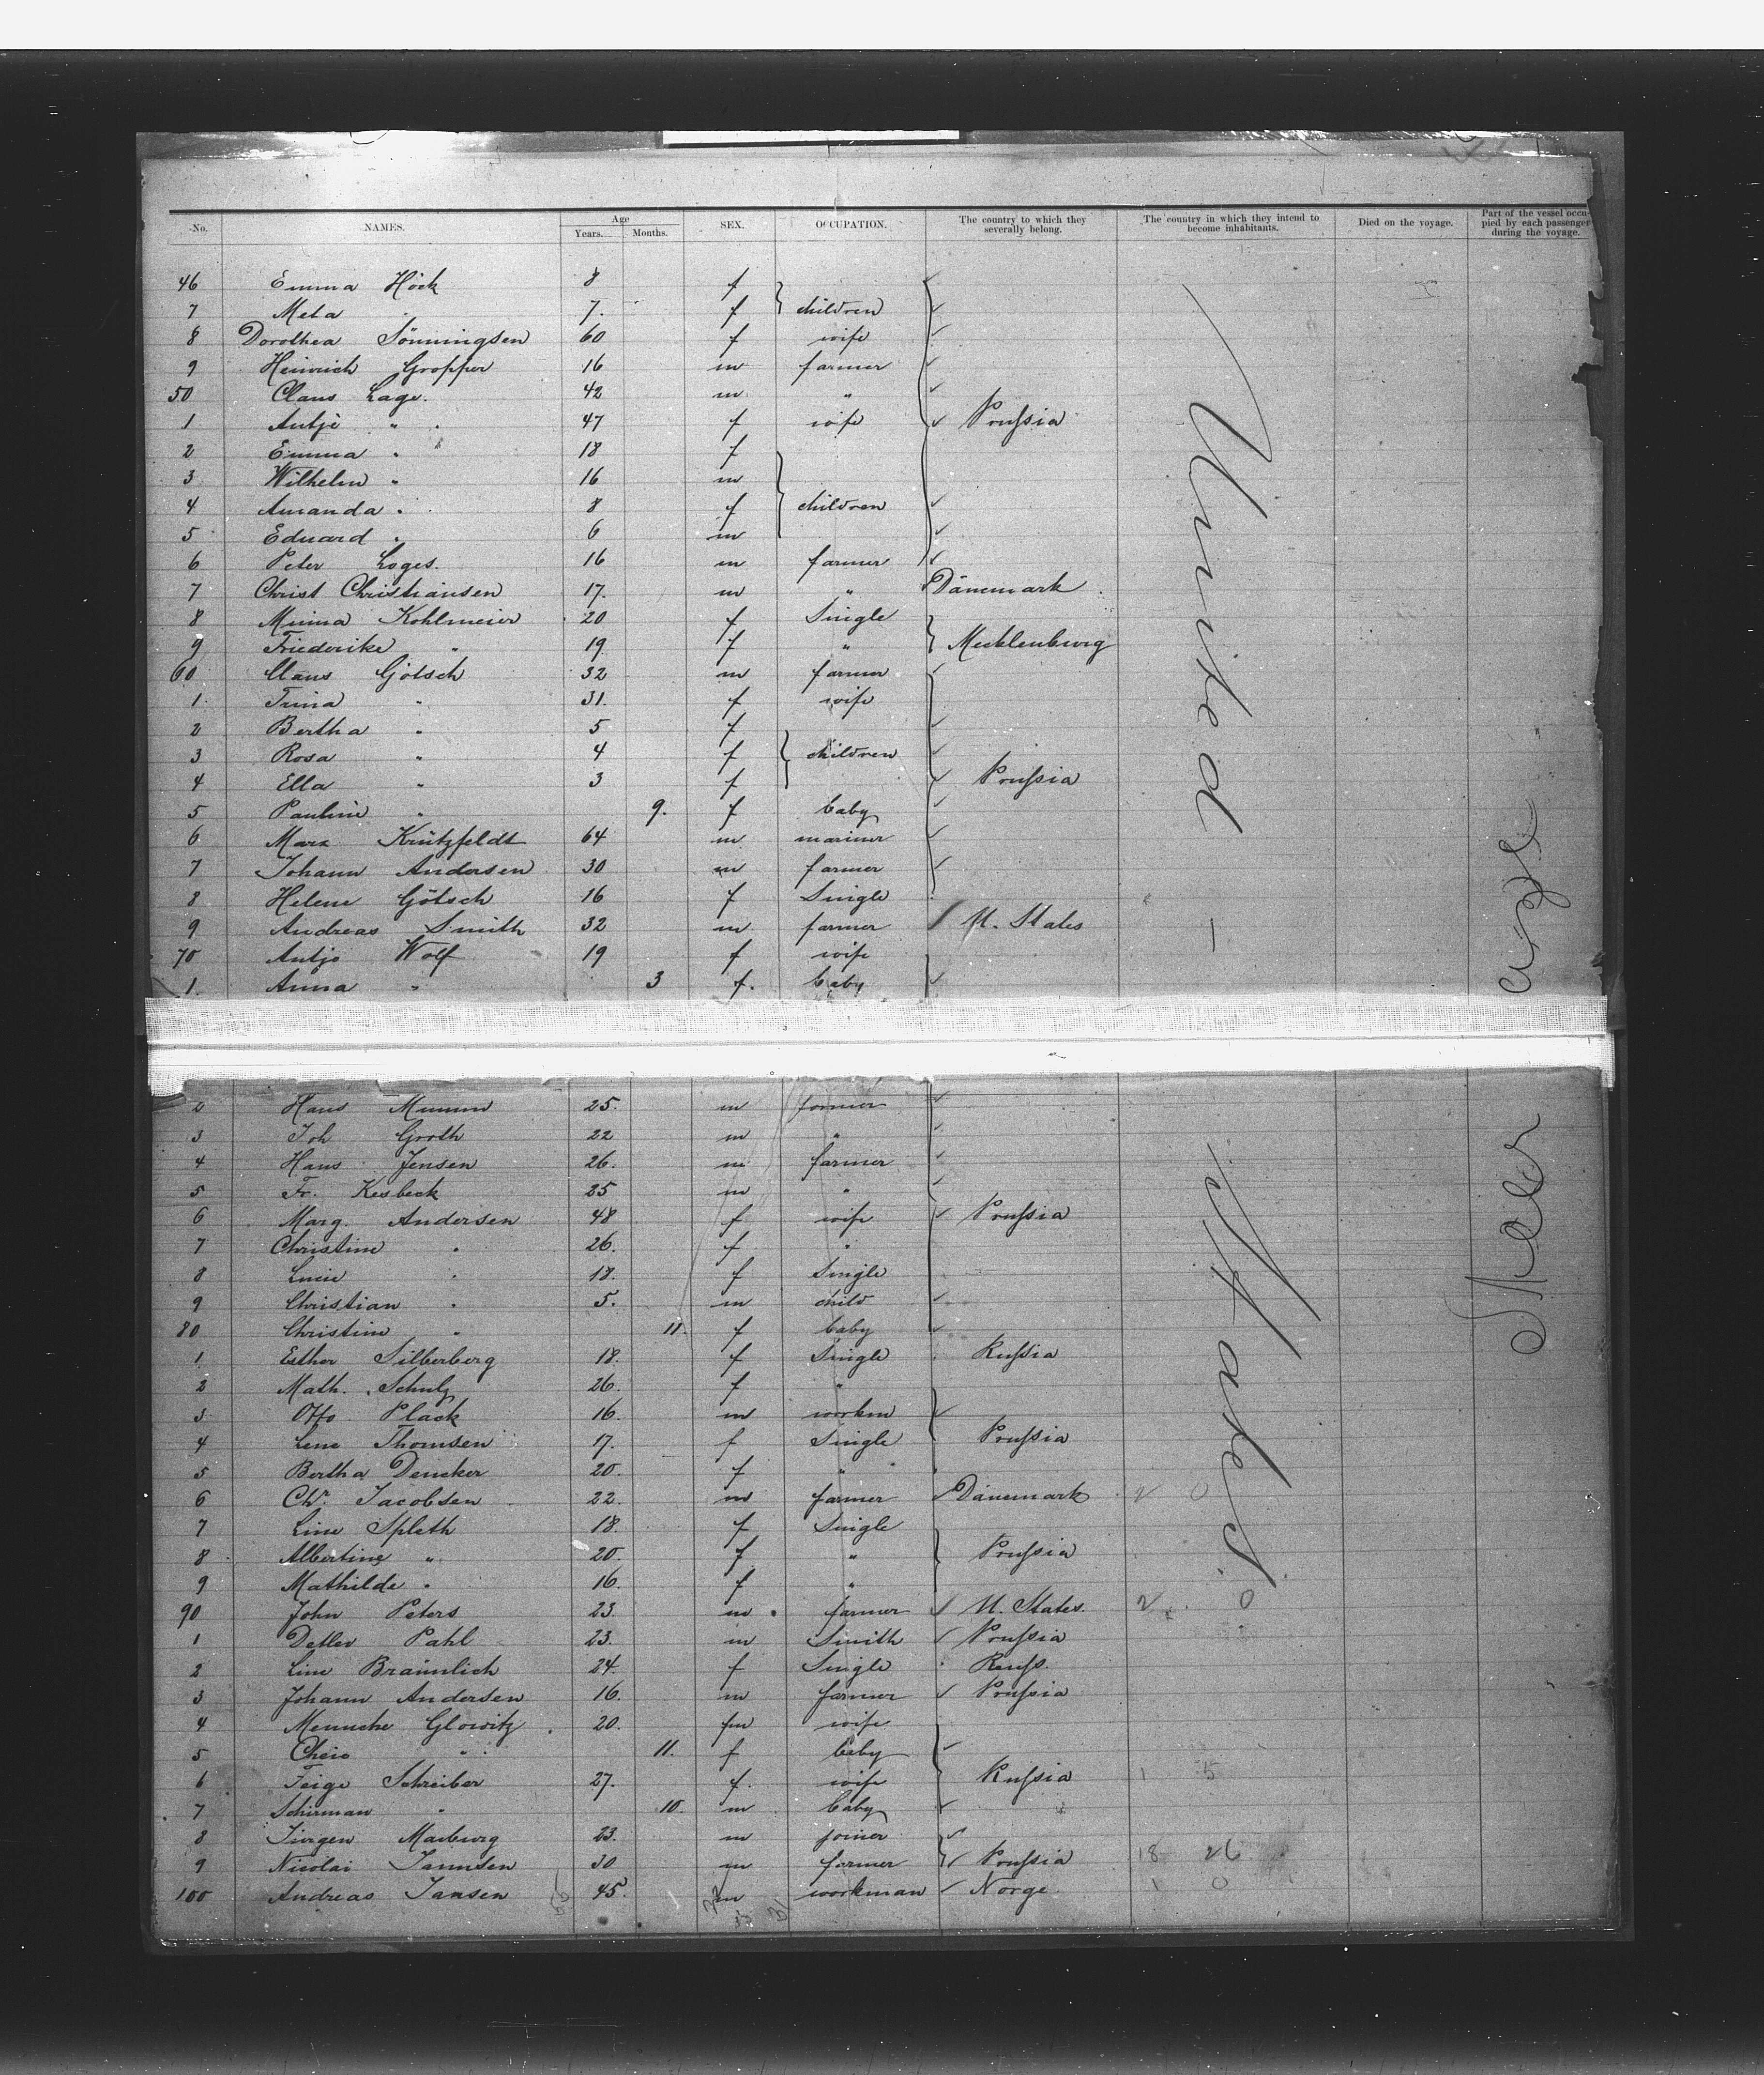 No. NAMES. Age Years. Months. SEX. OCCUPATION. The country to which they severally belong. The country in which they intend to become inhabitants. Died on the voyage. Part of the vessel occupied by each passenger during the voyage.
46 Emma Höck 8 f
7 Meta " 7. f children
8 Dorothea Sönningsen 60 f wife
9 Heinrich Gropper 16 m farmer
50 Claus Lage. 42 m "
1 Antje " 47 f wife Prußia
2 Emma " 18 f
3 Wilhelm " 16 m
4 Amanda " 8 f children
5 Eduard " 6 m
6 Peter Loges. 16 m farmer
7 Christ Christiansen 17. m " Dänemark
8 Minna Kohlmeier 20 f Single
9 Friederike " 19 f " Mecklenburg
60 Claus Götsch 32 m farmer
1 Trina " 31. f wife
2 Bertha " 5 f
3 Rosa " 4 f children
4 Ella " 3 f Prußia
5 Pauline " 9. f baby
6 Marx Krützfeldt 64 m mariner
7 Johann Andersen 30 m farmer
8 Helene Götsch 16 f Single
9 Andreas Smith 32 m farmer U. States
70 Antje Wolf 19 f wife
1. Anna " 3 f. baby
United -
2 Hans Mumm 25. m farmer
3 Joh Groth 22 m "
4 Hans Jensen 26. m farmer
5 Fr. Kesbeck 25 m "
6 Marg. Andersen 48 f wife Prußia
7 Christine " 26. f "
8 Lucie " 18. f Single
9 Christian " 5. m child
80 Christine " 11. f baby
1 Esther Silberberg 18. f Single Rußia
2 Math. Schulz 26. f "
3 Otto Plack 16. m workm
4 Lene Thomsen 17. f Single Prußia
5 Bertha Dencker 20. f " "
6 Chr. Jacobsen 22. m farmer Dänemark 2 0
7 Line Spleth 18. f Single
8 Albertine " 20. f " Prußia
9 Mathilde " 16. f "
90 John Peters 23. m farmer U. States. 2 0
1 Detlev Pahl 23. m Smith Prußia
2 Line Bräunlich 24. f Single Reuß.
3 Johann Andersen 16. m farmer Prußia
4 Menucke Glowitz 20. fm wife
5 Cheie " 11. f baby
6 Feige Schreiber 27. f. wife Rußia 1 5
7 Schirman " 10. m baby
8 Jürgen Marburg 23. m joiner
9 Nicolai Jannsen 30 m farmer Prußia 18 26
100 Andreas Jansen 45. m workman Norge 1 0
States.
Steerage